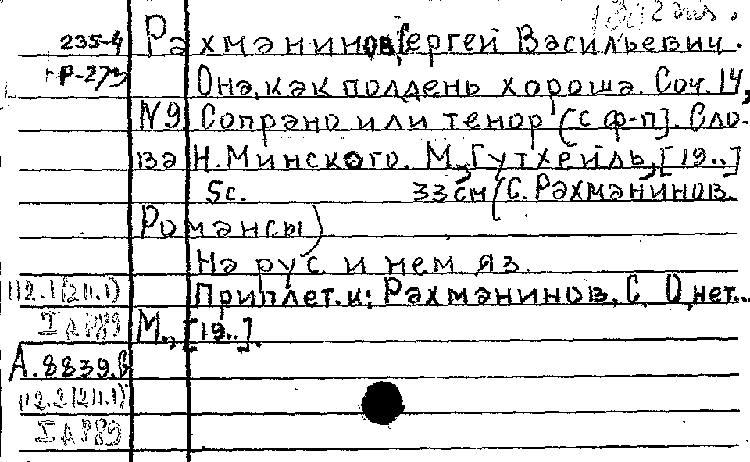 235-4 Рахманинов, Сергей Васильевич.
Р-273 Она, как полдень хороша. Соч. 14,
N9. Сопрано или тенор [с ф-п]. Сло-
ва Н. Минского. М., Гутхейль, [19..]
5с. 33 см (С. Рахманинов.
Романсы)
На рус. и нем яз.
112.1(211.1) Приплет. к: Рахманинов, С. О, нет...
М., [19..].
А.8839.
112.2(211.1)